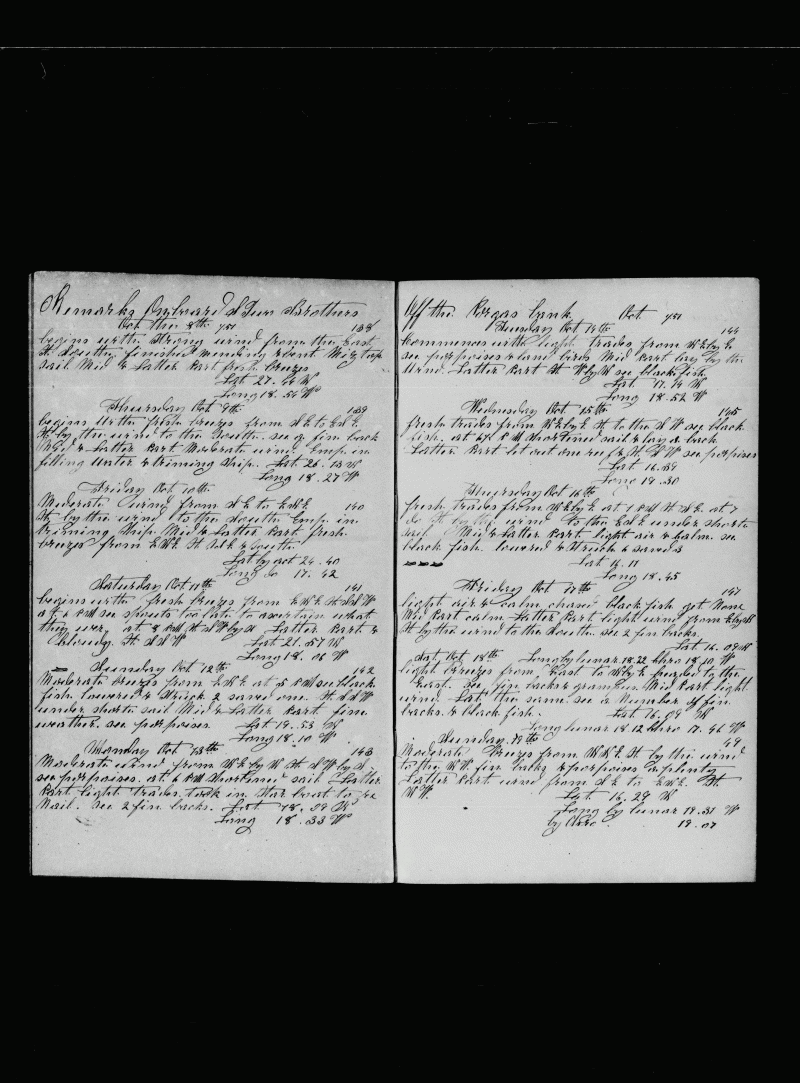 Remarks Onboard S Two Brothers
Oct the 8th /51 138
begins with strong wind from the East
St Southy. finished mending & bent Mizntop
sail Mid & Latter Part fresh breezes
Lat 27.44 N
Long 18.54 W
Thursday Oct 9th 139
begins with fresh breezes from N E to E N E
St by the wind to the South. see a fin back
Mid & Latter Part Moderate wind Emp. in
filling water & triming Ship. Lat 26.13 N
Long 18.27 W
Friday Oct 10th
Moderate wind from N E to E N E 140
St by the wind to the South Emp. in
triming Ship Mid & Latter Part fresh
breezes from E N E St S E & South
Lat by act 24.40
Long do 17.42
Saturday Oct 11th 141
begins with fresh breezes from E N E St S S W
at 1 PM see spouts too late to asertain what
they wer. at 8 PM St S W by S Latter Part &
Cloudy. St S S W Lat 21.57 N
Long 18.06 W
Sunday Oct 12th 142
Moderate breezes from E N E at 5 PM see black
fish lowered & Struck 2 saved one St S S W
under short sail Mid & Latter Part fine
weather. see porpoises Lat 19.53 N
Long 18.10 W
Monday Oct 13th 143
Moderate wind from N E by N St S W by S
see porpoises. at 6 PM shortened sail Latter
Part light trades took in Star boat to
Nail. see 2 fin backs. Lat 18.09 N
Long 18.33 W
Off the bank Oct /51
Tuesday Oct 14th 144
Commences with light trades from N E by E
see porpoises & land birds Mid Part lay by the
Wind. Latter Part St W by N see black fish
Lat 17.14 N
Long 18.52 W
Wednesday Oct 15th 145
fresh trades from N E by E St to the S W see black
fish. at 6 PM shortened sail & lay a back
Latter Part let out one reef & St S W see porpoises
Lat 16.39
Long 18.30
Thursday Oct 16th
fresh trades from N E by E at 1 PM St S E. at 7
do St by the wind To the E S E under short
sail Mid & Latter Part light air & Calm. see
black fish lowered & Struck & saved 3
Lat 16.11
Long 18.45
Friday Oct 17th 147
light air & Calm chased black fish got None
Mid Part calm Latter Part light wind from
St by the wind to the South. see 2 fin backs.
Lat 16.09 N
Sat Oct 18th Long by lunar 18.22 Chro 18.10 W
light breezes from East to N by E headed to the
East. See fin backs & grampus Mid Part light
wind Lat the same. see a Number of fin
backs. & black fish Lat 16.09 N
Long lunar 18 12 Chro 17.46 W
Sunday 19th 49
Moderate Breezes from N N E St by the wind
to the N W. fin backs & porpoises a plenty
Latter Part wind from N E to E N E. St
N W. Lat 16.29 N
Long by lunar 19.31 W
by Chro 19.07